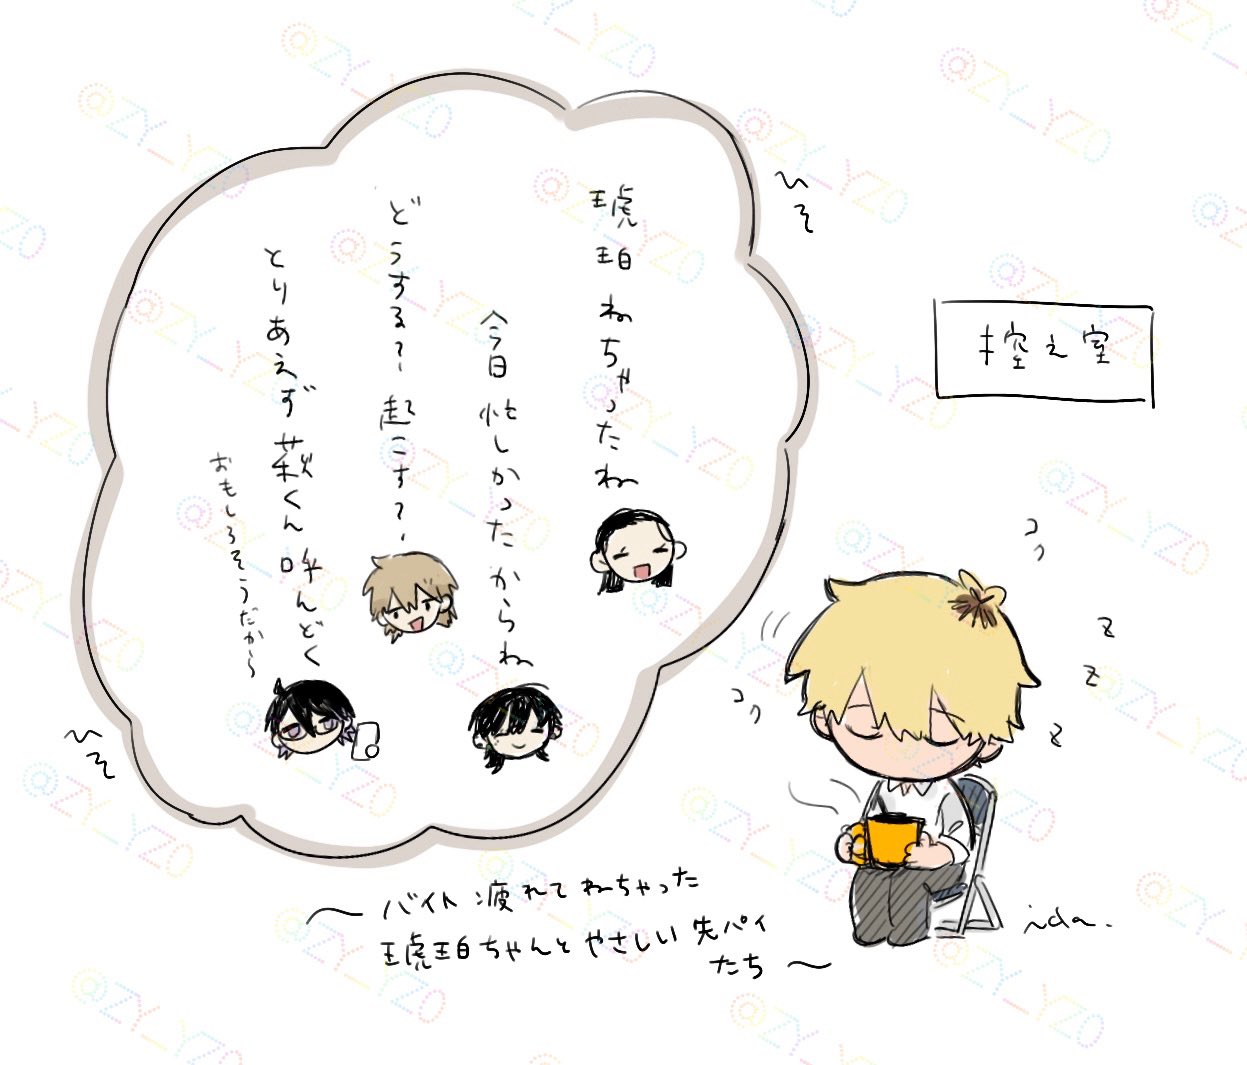 琥珀ねちゃったね
今日忙しかったからね
どうする？起こす？
とりあえず萩くん呼んどく
おもしろそうだから
ひそ
ひそ
控え室
コク
コク
z
z
z
〜バイト疲れてねちゃった
琥珀ちゃんとやさしい先パイ
たち〜
ida.
@ZY_YZ0